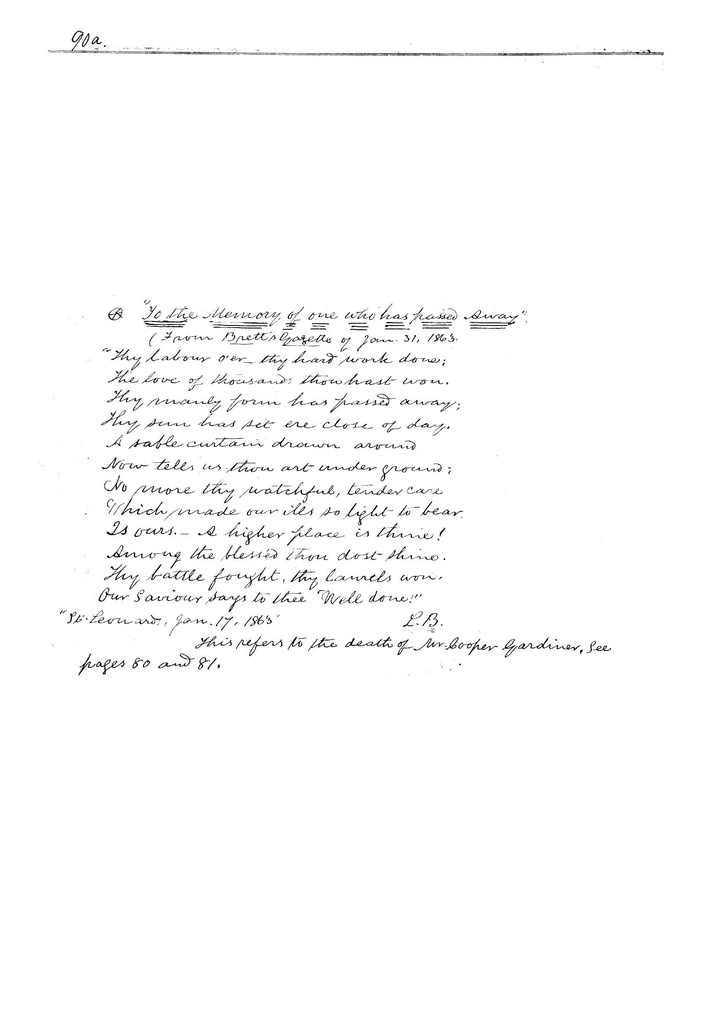 90a.
⊗ "To the Memory of one who has passed Away".
(From Brett's Gazette of Jan. 31, 1863.
"Thy labour o'er – thy hard work done;
The love of thousands thou hast won.
Thy manly form has passed away;
Thy sun has set ere close of day.
A sable curtain drawn around
Now tells us thou art under ground;
No more thy watchful, tender care
Which made our ills so light to bear.
Is ours. – A higher place is thine!
Among the blessed thou dost shine.
Thy battle fought, thy laurels won,
Our Saviour says to thee "Well done!"
"St. Leonards, Jan. 17, 1863" L.B.
This refers to the death of Mr. Cooper Gardiner, See
pages 80 and 81.